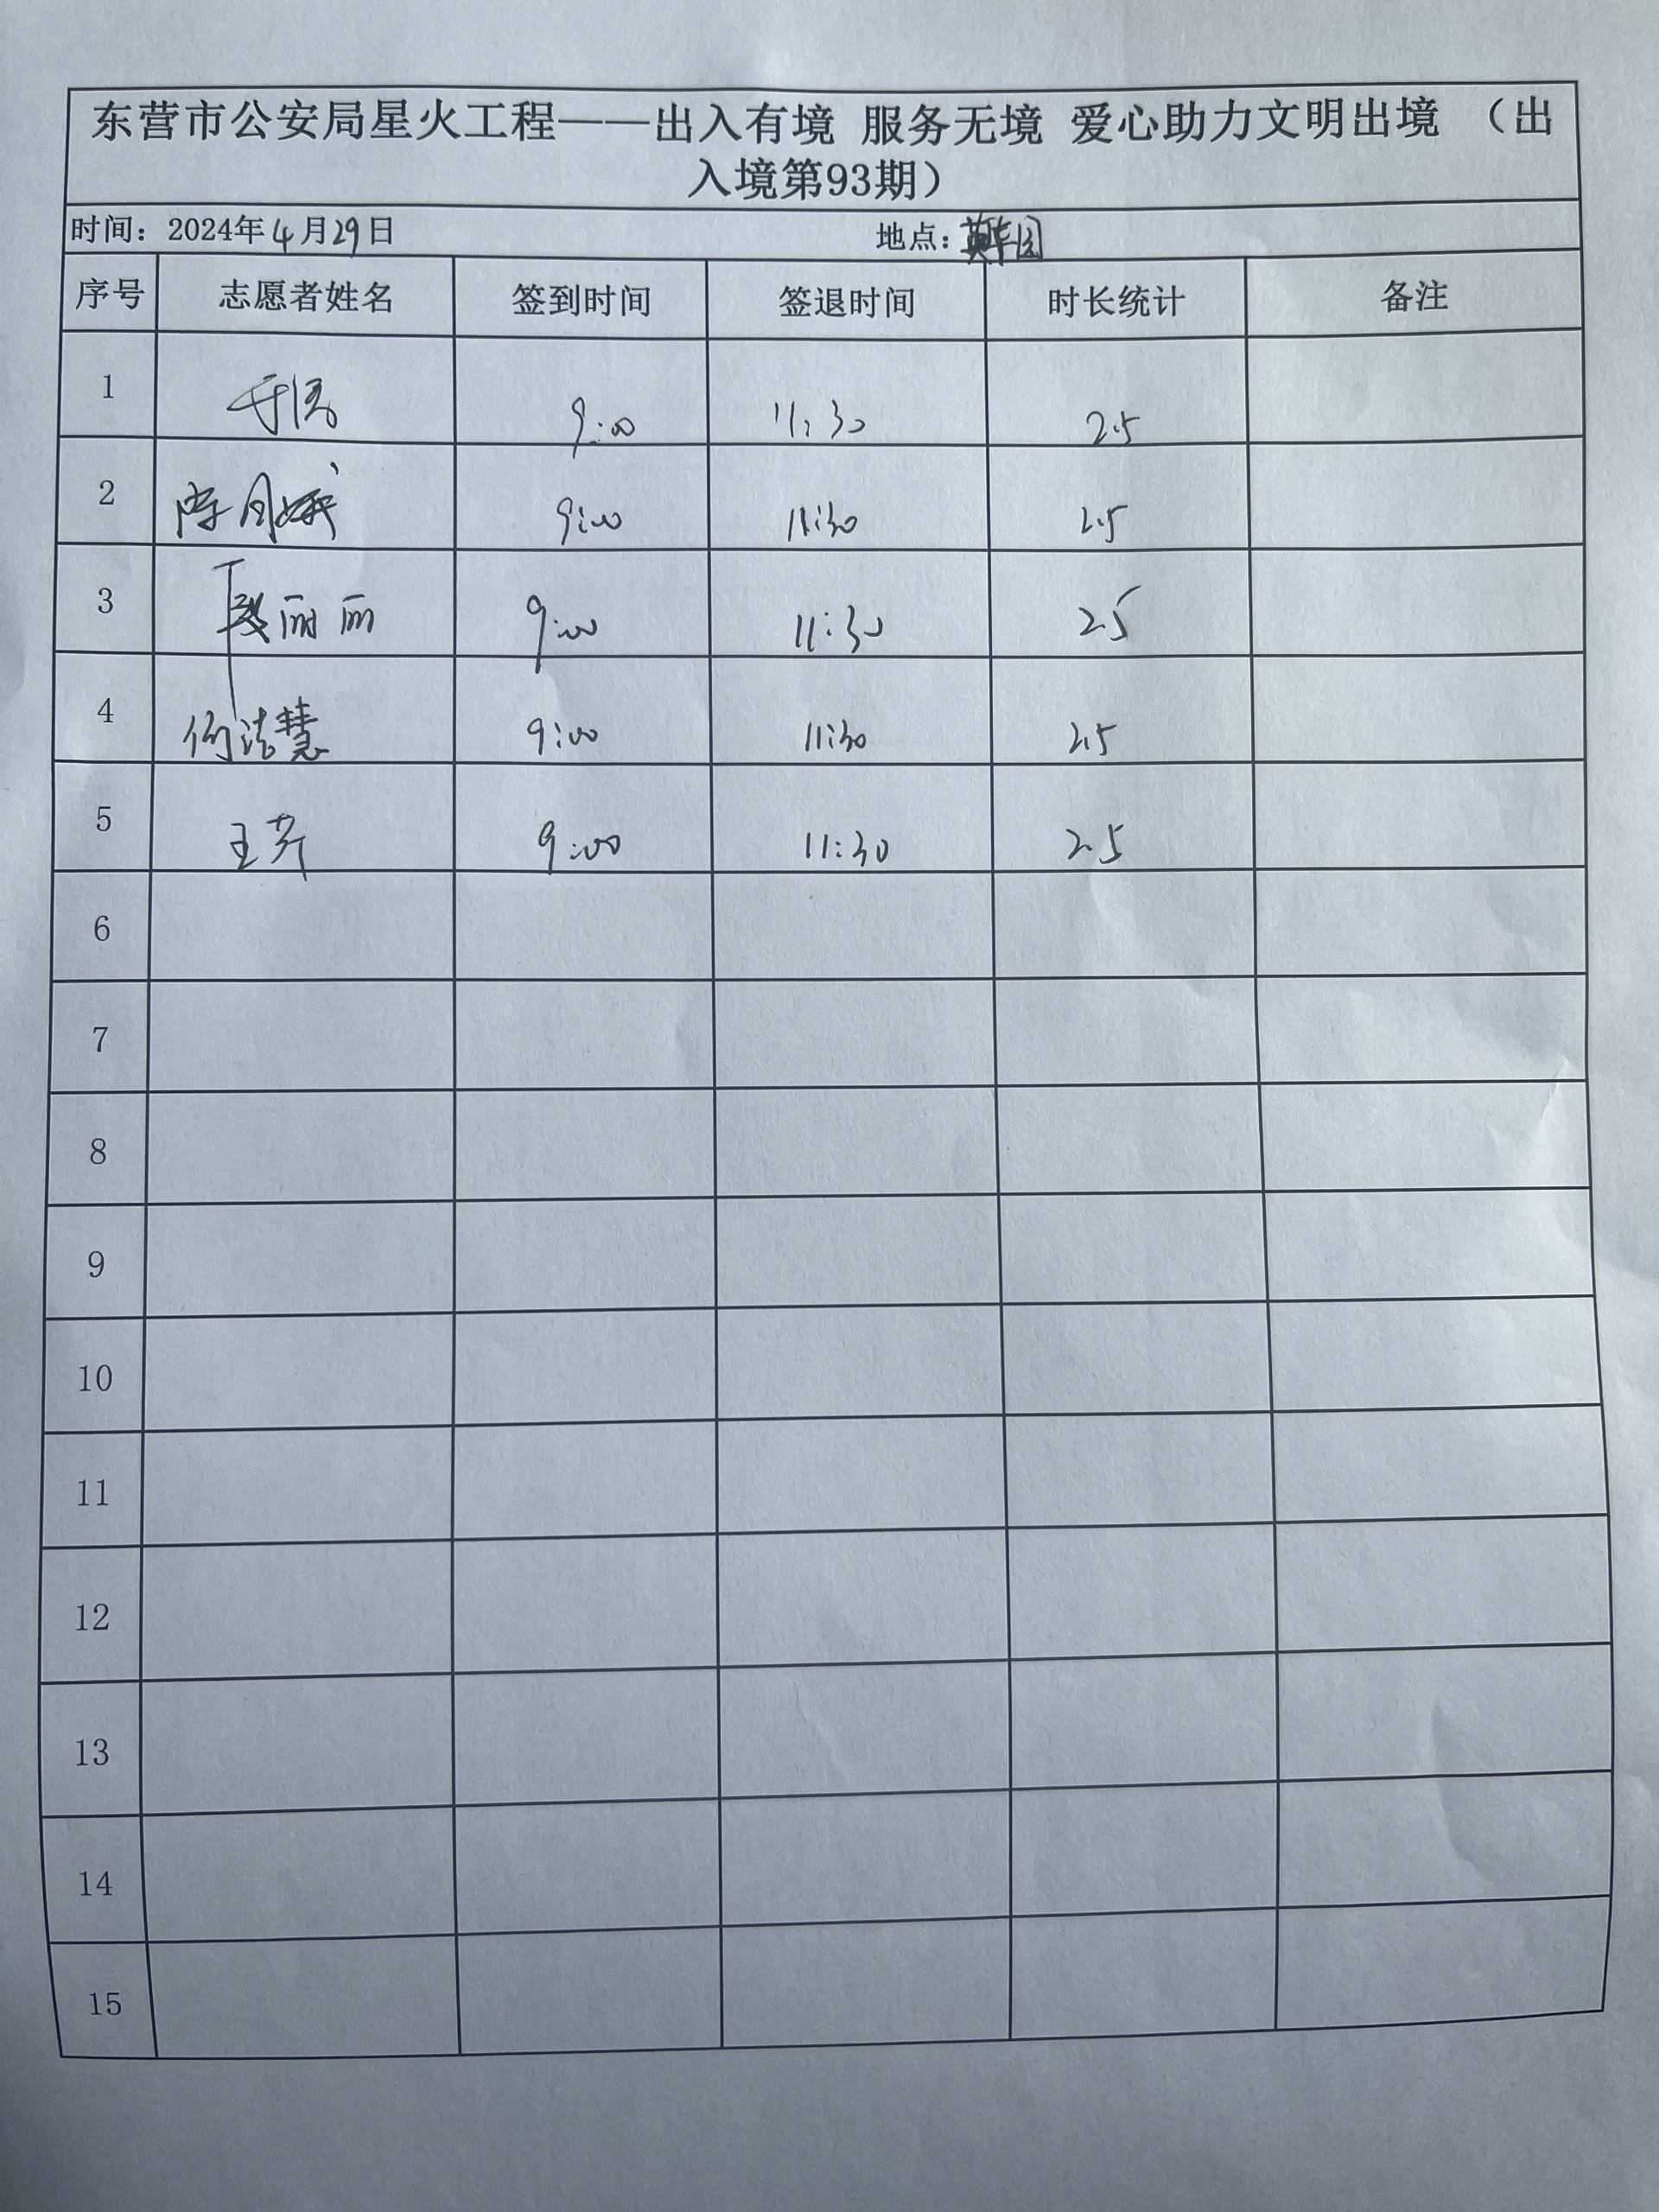 东营市公安局星火工程——出入有境 服务无境 爱心助力文明出境 （出
入境第93期）
时间：2024年4月29日 地点：
序号 志愿者姓名 签到时间 签退时间 时长统计 备注
1 9:00 11:30 2.5
2 陈月娥 9:00 11:30 2.5
3 段丽丽 9:00 11:30 2.5
4 何洁慧 9:00 11:30 2.5
5 王芹 9:00 11:30 2.5
6
7
8
9
10
11
12
13
14
15